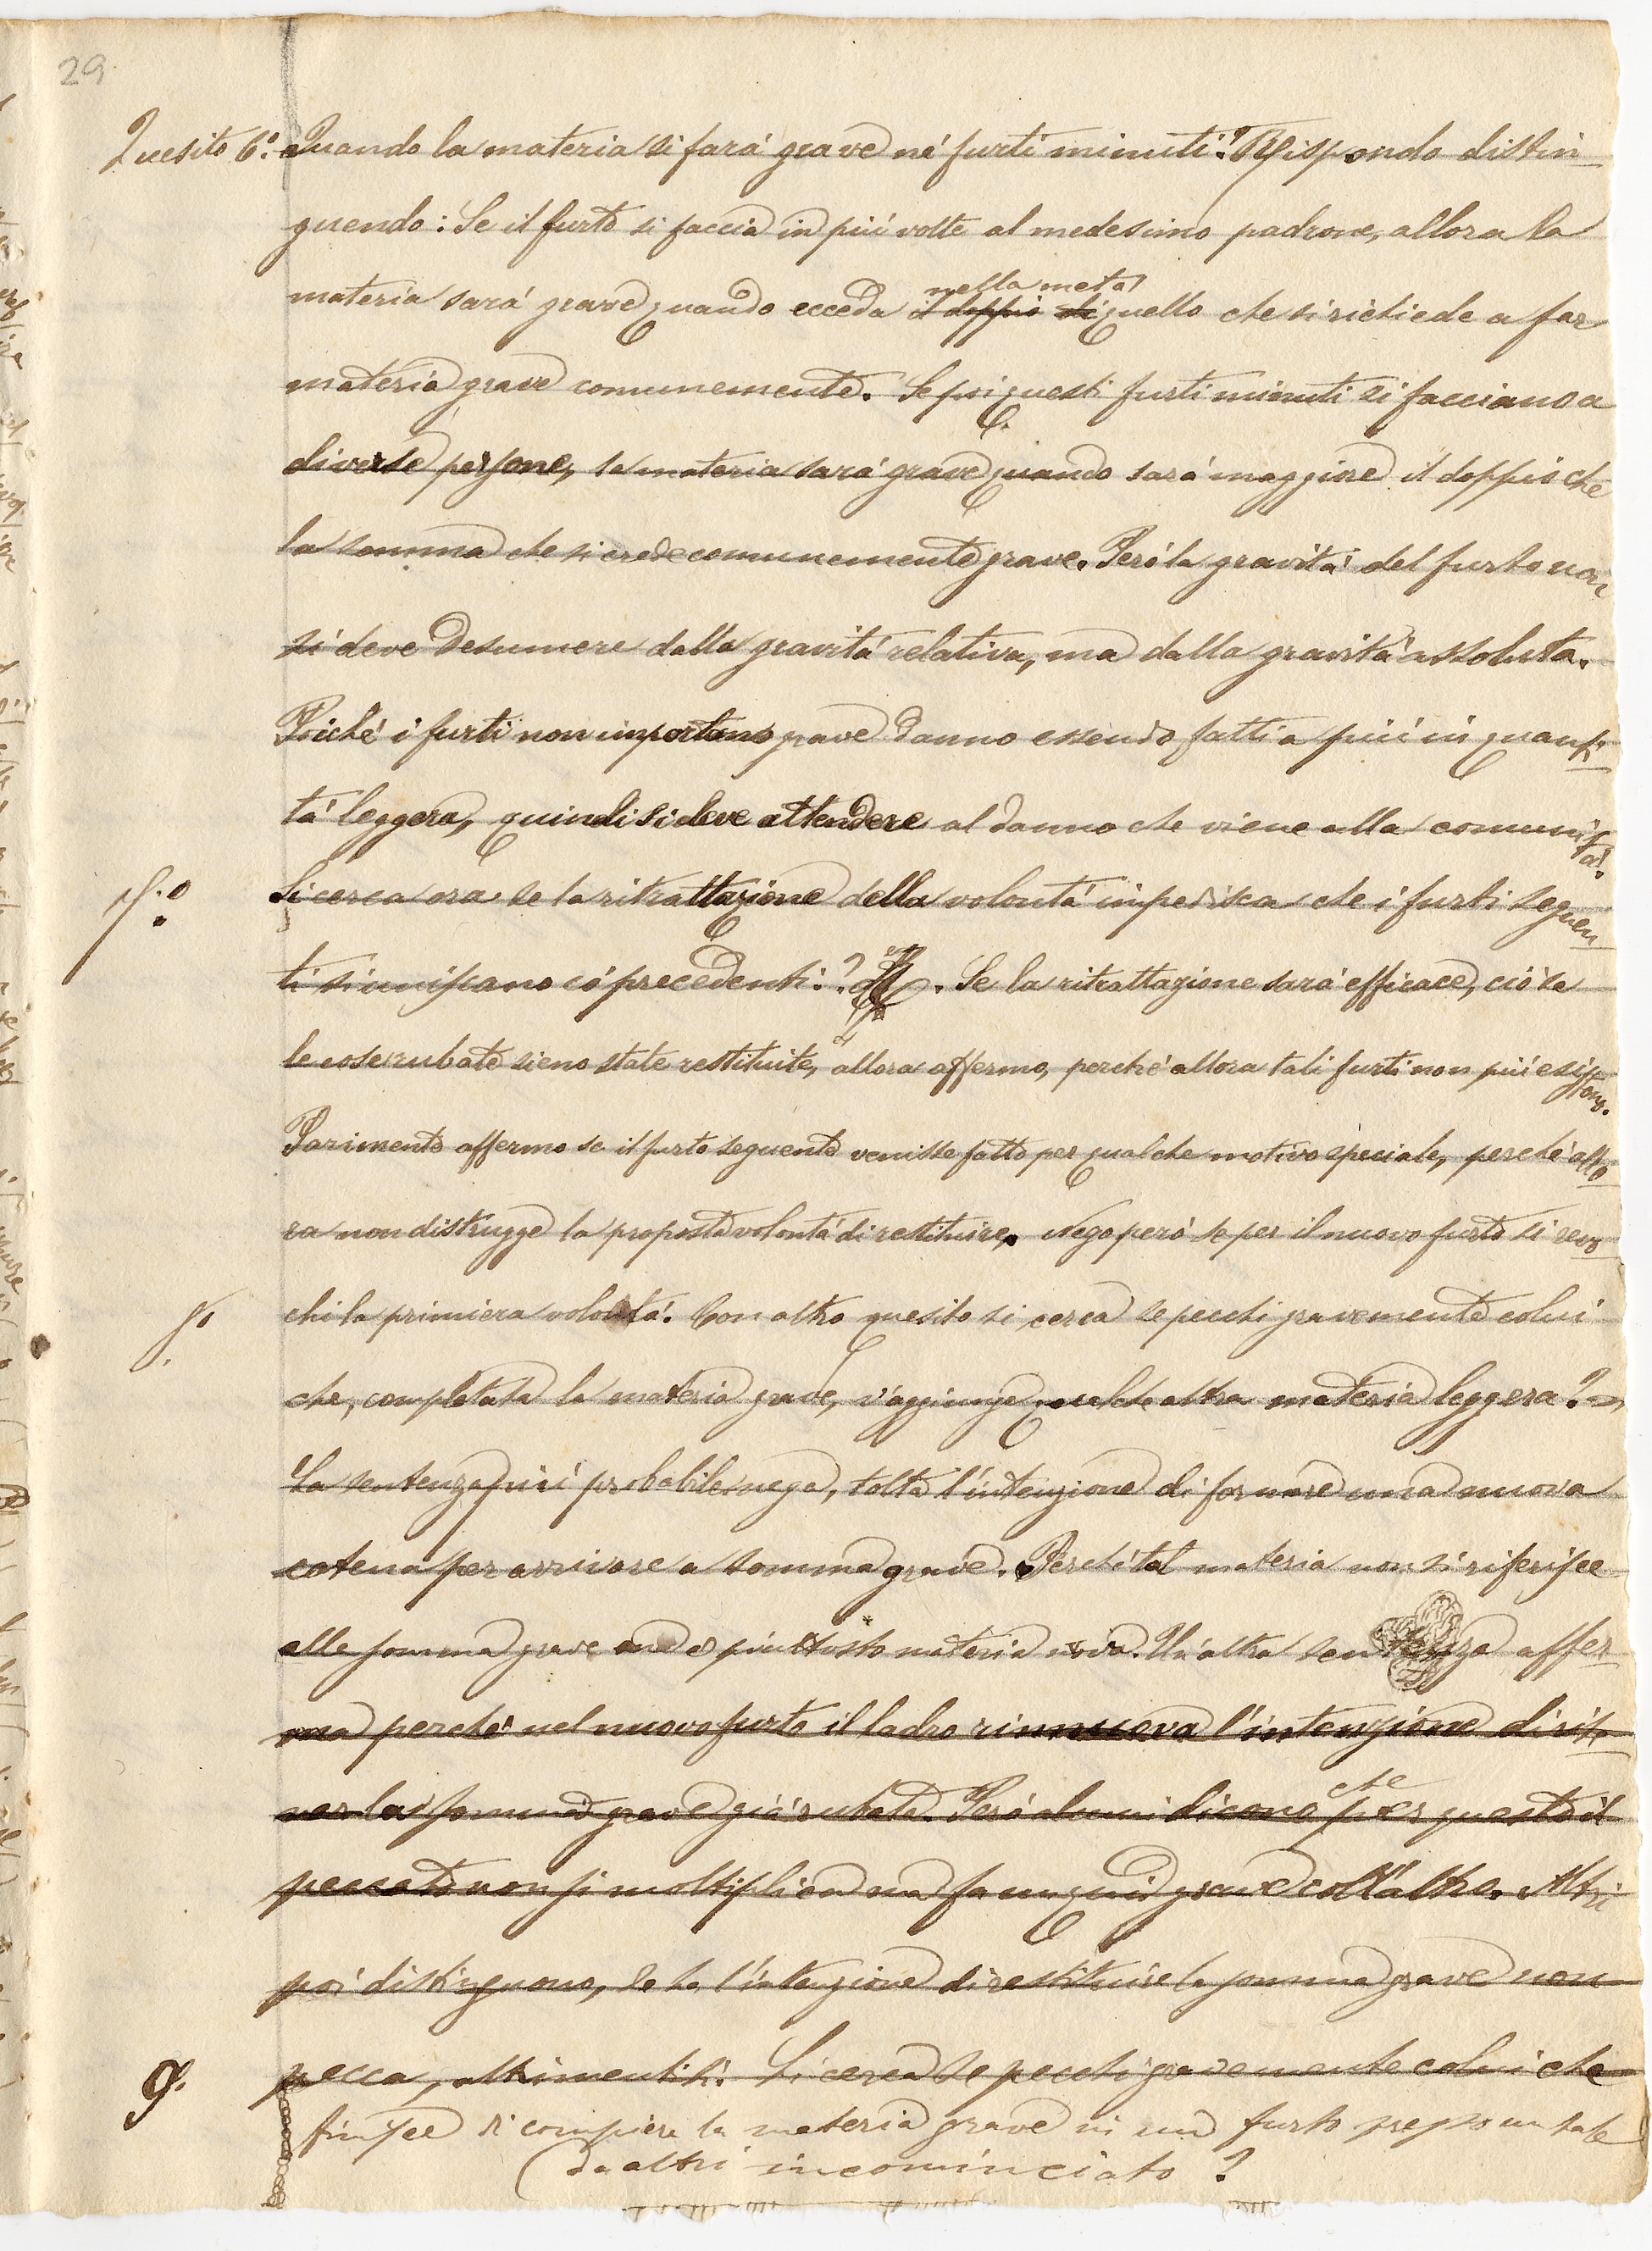 29.
Quesito 6.° Quando la materia si fará grave né furti minuti? Rispondo distin-
guendo: Se il furto si faccia in piú volte al medesimo padrone, allora la
nella metá
materia sará grave quando ecceda il doppio di quello che si richiede a far
materia grave comunemente. Se poi questi furti minuti si facciano a
diverse persone, la materia sará grave quando sará maggiore il doppio che
la somma che si crede comunemente grave. Peró la gravitá del furto non
si deve desumere dalla gravitá relativa, ma dalla gravitá assoluta.
Poiché i furti non importano grave danno essendo fatti a piú in quanti-
tá leggera, quindi si deve attendere al danno che viene alla comunitá.
7.° Si cerca ora se la ritrattazione della volontá impedisca che i furti seguen-
ti si uniscano có precedenti? R. Se la ritrattazione sará efficace, cioé se
le cose rubate sieno state restituite, allora affermo, perché allora tali furti non piú esistono.
Parimente affermo se il furto seguente venisse fatto per qualche motivo speciale, perché allo-
ra non distrugge la proposta volontá di restituire. Nego peró se per il nuovo furto si revo-
8° chi la primiera volontá. Con altro quesito si cerca se pecchi gravemente colui
che, completata la materia grave, v'aggiunge qualche altra materia leggera? =
La sentenza piú probabile nega, tolta l'intenzione di formare una nuova
catena per arrivare a somma grave. Perché tal materia non si riferisce
alla somma grave ma é piuttosto materia nova. Un'altra sentenza affer-
ma perché nel nuovo furto il ladro rinnuova l'intenzione di rite-
che
ner la somma grave giá rubata. Peró alcuni dicono per questo il
peccato non si moltiplica ma fa un quid grave coll'altro. Altri
poi distinguono, se ha l'intenzione di restituire la somma grave non
9. pecca, altrimenti sí. Si cerca se pecchi gravemente colui che
finisce di compiere la materia grave in un furto presso un tale
da altri incominciato?